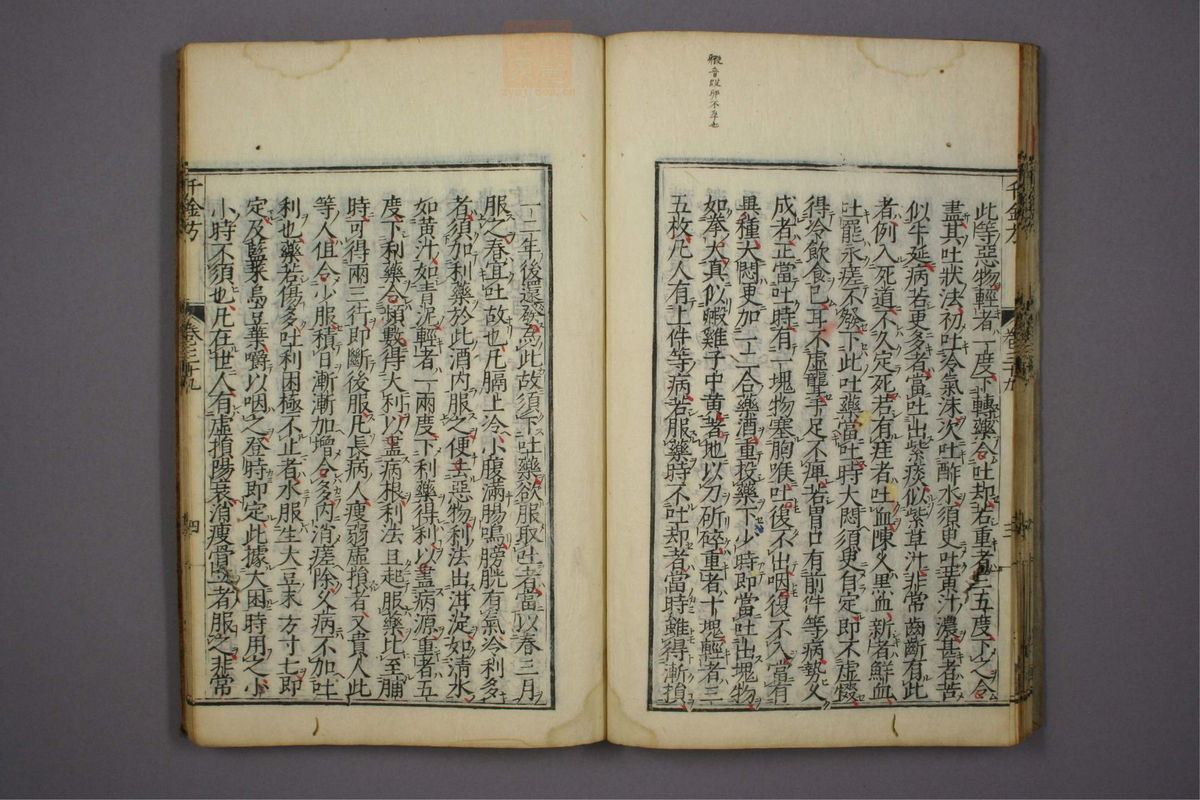 此等惡物輕者一度下轉藥令吐却若重者三五度下之令
盡其吐狀法初吐冷氣沫次吐酢水須臾吐黃汁濃甚者苦
似牛涎病若更多者當吐出紫痰似紫草汁非常齒齗有此
者例入死道不久定死若有疰者吐血陳久黑血新者鮮血
吐罷永瘥不發下此吐藥當吐時大悶須臾自定即不虛惙
得冷飲食已耳不虛聾手足不痹若胃口有前件等病勢久
成者正當吐時有一塊物塞胸喉吐復不出咽復不入當有
異種大悶更加一二合藥酒重投藥下少時即當吐出塊物
如拳大真似蝦雞子中黃著地以刀斫碎重者十塊輕者三
五枚凡人有上件等病若服藥時不吐却者當時雖得漸損
千金方
卷三十九
三
一二年後還發為此故須下吐藥欲服取吐者當以春三月
服之春宜吐故也凡膈上冷小腹滿腸鳴膀胱有氣冷利多
者須加利藥於此酒內服之便去惡物利法出洱淀如清水
如黃汁如青泥輕者一兩度下利藥得利以盡病源重者五
度下利藥令頻數得大利以盡病根利法旦起服藥比至晡
時可得兩三行即斷後服凡長病人瘦弱虛損者又貴人此
等人但令少服積日漸漸加增令多內消瘥除久病不加吐
利也藥若傷多吐利困極不止者水服生大豆末方寸匕即
定及藍葉烏豆葉嚼以咽之登時即定此據大困時用之小
小時不須也凡在世人有虛損陽衰消瘦骨立者服之非常
千金方
卷三十九
四